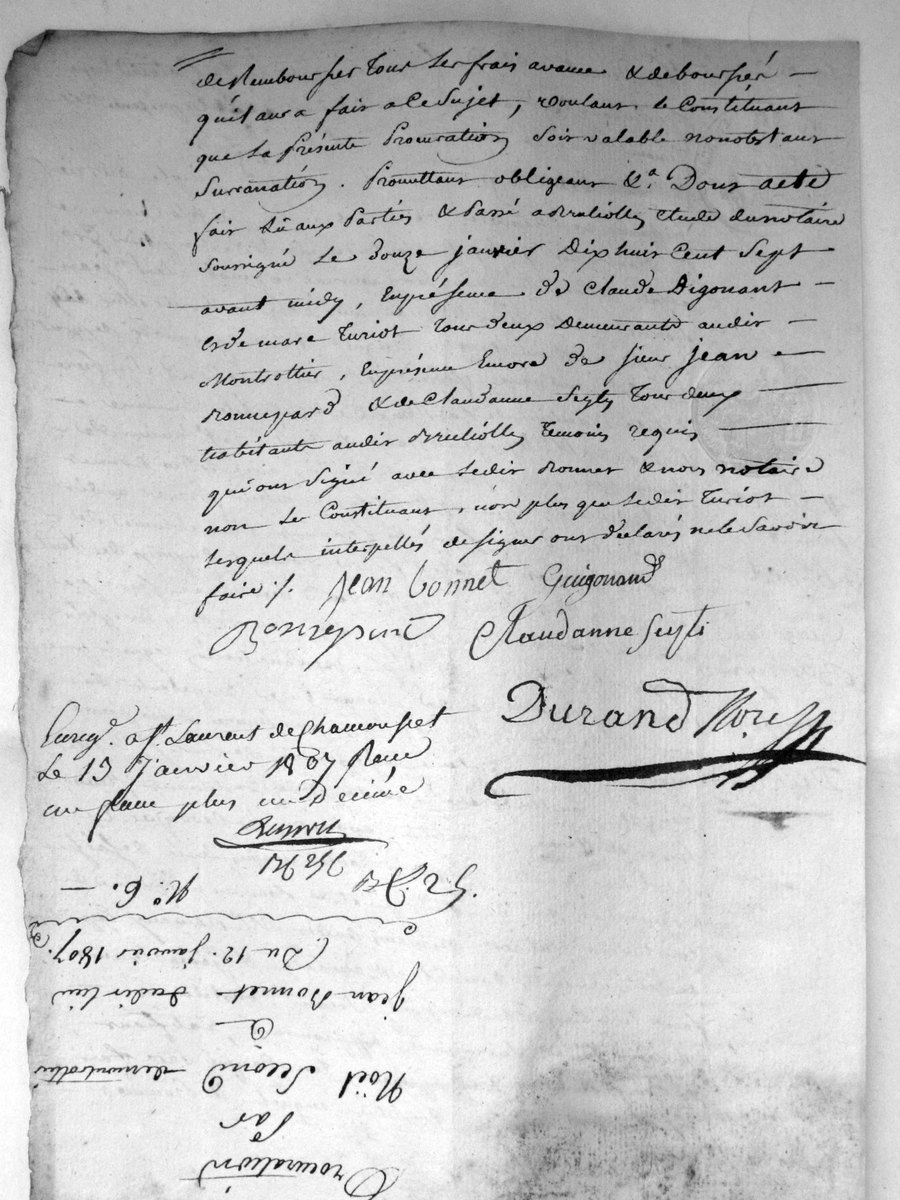 de Rembourser tous ses frais avance & deboursés —
qu'il aura fait a ce sujet, voulant le Constituant
que la présente Procuration soit valable nonobstant
Surranation. Promettant obligeant &.a Dont acte
fait Lû aux Parties & Passé a Brullioles Etude du notaire
soussigné Le douze janvier Dix huit Cent Sept
avant midy, En présense de Claude Digonant —
& de marc Turiot tous deux Demeurants audit —
Montrottier, En présense Encore de sieur jean
& de Claudanne Seyty tous deux —
habitants audit Brulliolles temoins requis —
qui ont Signé avec Ledit Bonnet & nous notaire
non Le Constituant, non plus que Ledit Turiot —
Lesquels interpellés de signer ont déclarés ne le Savoir
faire /.
Jean bonnet Guigonand
Claudanne Seyti
Durand Nore
Enreg. a St. Laurent de Chamousset
Le 13 janvier 1807 Reçu
un franc plus un Décime
N.o 6. —
(Du 12. janvier 1807.
jean Bonnet dudit lieu
a
Noël Second de montrottier
Par
Procuration